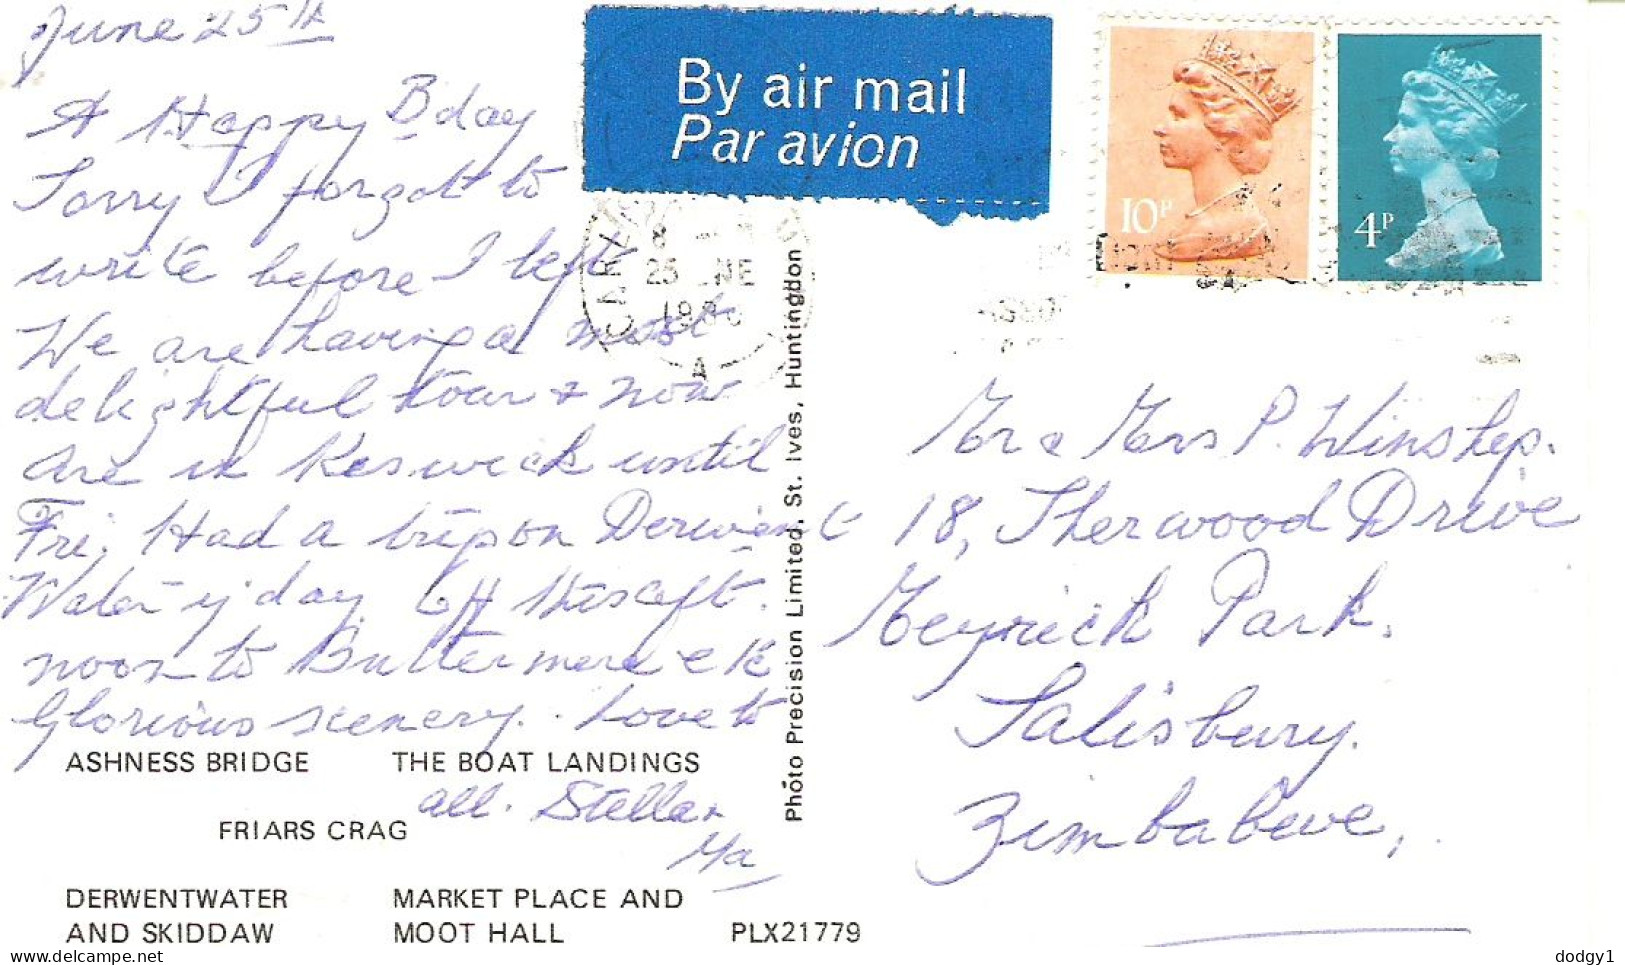 June 25th
A Happy B'day
Sorry I forgot to
write before I left
We are having a most
delightful tour & now
are in Keswick until
Fri. Had a trip on Derwent
Water y'day Off this aft.
noon to Buttermere etc
Glorious scenery. Love to
all. Stella &
Ma
ASHNESS BRIDGE THE BOAT LANDINGS
FRIARS CRAG
DERWENTWATER MARKET PLACE AND
AND SKIDDAW MOOT HALL PLX21779
Photo Precision Limited, St. Ives, Huntingdon
By air mail
Par avion
CARLI
8
25 NE
198
A
10P
4P
Mr & Mrs P. Winship.
18, Sherwood Drive
Meyrick Park.
Salisbury.
Zimbabwe.
dodgy1